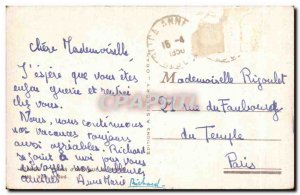 Chère Mademoiselle
J'espère que vous êtes
enfin guérie et rentrée
chez vous.
Nous, nous continuons
nos vacances toujours
aussi agréables. Richard
se joint à moi pour vous
envoyer nos meilleures
amitiés AnneMarie Richard
ANNE
16-4
1950
Mademoiselle Rigoulet
21 rue du Faubourg
du Temple
Paris